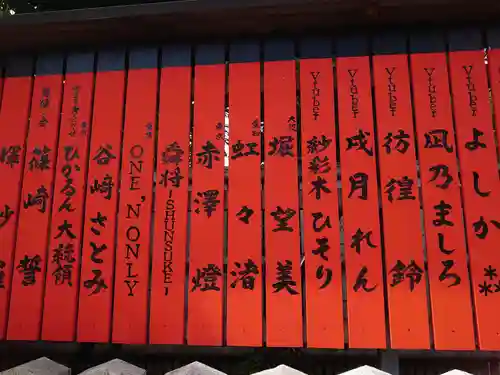 Vtuber よしか⁂
Vtuber 凪乃ましろ
Vtuber 彷徨鈴
Vtuber 戌月れん
Vtuber 紗彩木ひそり
堀望美
虹々渚
赤澤燈
舜将-SHUNSUKE-
ONE N' ONLY
谷崎さとみ
ひかるん大統領
篠崎誓